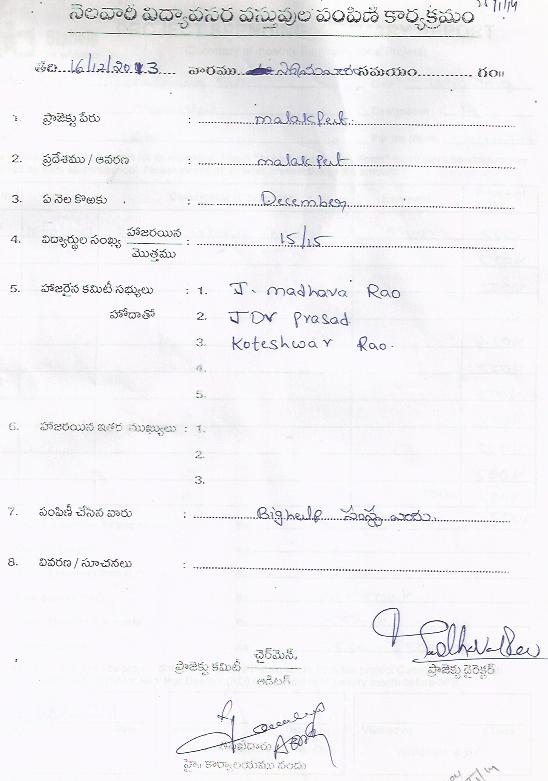 నెలవారి విద్యావసర వస్తువుల పంపిణి కార్యక్రమం
తేది 16/12/2013 వారము సమయం గం॥
1. ప్రాజెక్టు పేరు : malakpet
2. ప్రదేశము / ఆవరణ : malakpet
3. ఏ నెల కొఱకు : December
4. విద్యార్థుల సంఖ్య హాజరయిన / మొత్తము : 15/15
5. హాజరైన కమిటీ సభ్యులు : 1. J. madhava Rao
హోదాతో 2. JDV prasad
3. Koteshwar Rao.
4.
5.
6. హాజరయిన ఇతర ముఖ్యులు : 1.
2.
3.
7. పంపిణీ చేసిన వారు : Bighelp
8. వివరణ / సూచనలు :
ప్రాజెక్టు కమిటీ ఛైర్‌మెన్, / ఆడిటర్
ప్రాజెక్టు డైరెక్టర్
హై॥ కార్యాలయము నందు